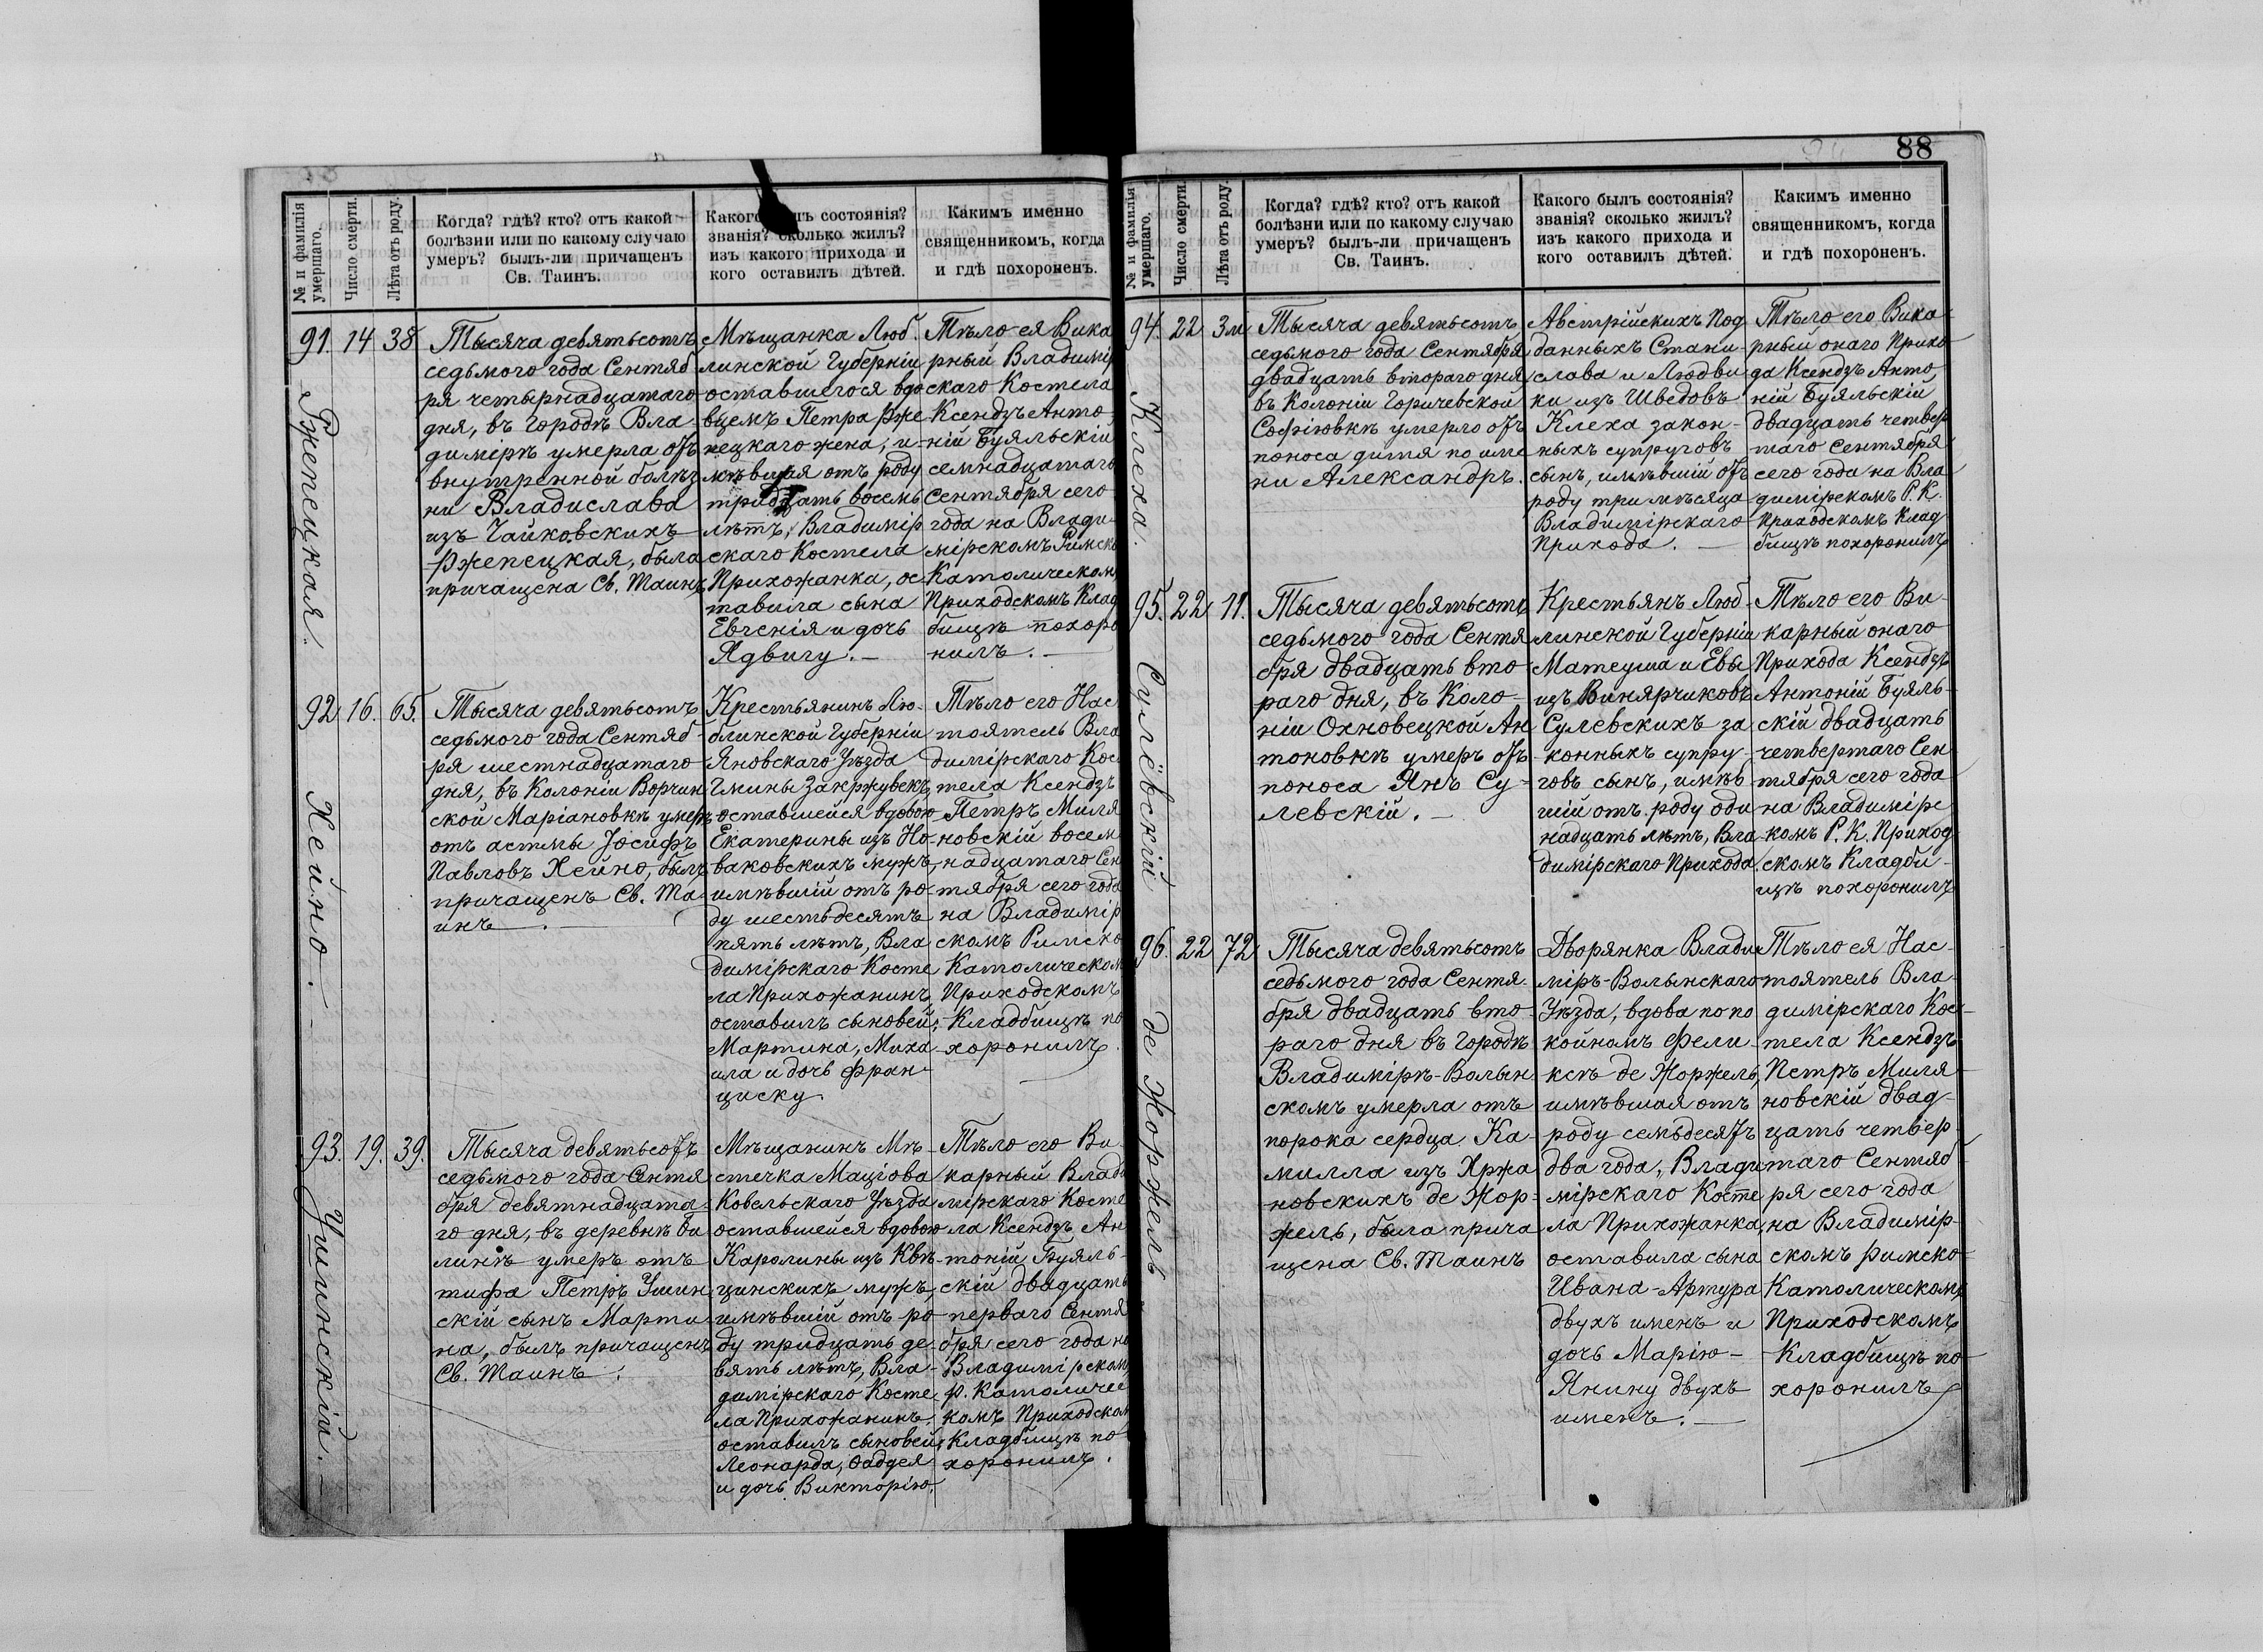 88
№ и фамилія
умершаго.
Число смерти.
Лѣта отъ роду.
Когда? гдѣ? кто? отъ какой
болѣзни или по какому случаю
умеръ? былъ-ли причащенъ
Св. Таинъ.
Какого былъ состоянія?
званія? сколько жилъ?
изъ какого прихода и
кого оставилъ дѣтей.
Какимъ именно
священникомъ, когда
и гдѣ похороненъ.
91. Ржепецкая.
14
38
Тысяча девятьсотъ
седьмого года Сентяб
ря четырнадцатаго
дня, въ городѣ Вла-
димірѣ умерла отъ
внутренной болѣз
ни Владислава
изъ Чайковскихъ
Ржепецкая, была
причащена Св. Таинъ
Мѣщанка Люб-
линской Губерніи
оставшегося вдо
вцемъ Петра Рже
пецкаго жена, и-
мѣвшая отъ роду
тридцать восемь
лѣтъ, Владимір
скаго Костела
Прихожанка, ос
тавила сына
Евгенія и дочь
Ядвигу. —
Тѣло ея Вика
рный Владимір
скаго Костела
Ксендзъ Анто-
ній Буяльскій
семнадцатаго
Сентября сего
года на Влади-
мірскомъ Римско
Католическомъ
Приходскомъ Клад
бищѣ похоро
нилъ. —
92. Хейно. —
16.
65.
Тысяча девятьсотъ
седьмого года Сентяб-
ря шестнадцатаго
дня, въ Колоніи Ворчин
ской Маріановкѣ умеръ
отъ астмы Іосифъ
Павловъ Хейно, былъ
причащенъ Св. Та-
инъ.
Крестьянинъ Лю-
блинской Губерніи
Яновскаго Уѣзда
Гмины Закржувекъ,
оставшейся вдовою
Екатерины изъ Но-
ваковскихъ мужъ,
имѣвшій отъ ро-
ду шестьдесятъ
пять лѣтъ, Вла
димірскаго Косте
ла Прихожанинъ,
оставилъ сыновей:
Мартина, Миха
ила и дочь Фран-
циску
Тѣло его Нас
тоятель Вла
димірскаго Кос
тела Ксендзъ
Петръ Миля
новскій восем
надцатаго Сен
тября сего года
на Владимір
скомъ Римско
Католическом
Приходскомъ
Кладбищѣ по
хоронилъ.
93. Ушинскій. —
19.
39.
Тысяча девятьсотъ
седьмого года Сентя
бря девятнадцата-
го дня, въ деревнѣ Би
линѣ умеръ отъ
тифа Петръ Ушин
скій сынъ Марти
на, былъ причащенъ
Св. Таинъ.
Мѣщанинъ Мѣ-
стечка Маціова
Ковельскаго Уѣзда
оставшейся вдовою
Каролины изъ Квѣ-
цинскихъ мужъ,
имѣвшій отъ ро-
ду тридцать де-
вять лѣтъ, Вла-
димірскаго Косте
ла Прихожанинъ,
оставилъ сыновей:
Леонарда, Фаддея
и дочь Викторію.
Тѣло его Ви-
карный Влади
мірскаго Косте
ла Ксендзъ Ан
тоній Буяль-
скій двадцать
перваго Сентя
бря сего года на
Владимірском
Р. Католичес
комъ Приходском
Кладбищѣ по
хоронилъ.
№ и фамилія
умершаго.
Число смерти.
Лѣта отъ роду.
Когда? гдѣ? кто? отъ какой
болѣзни или по какому случаю
умеръ? былъ-ли причащенъ
Св. Таинъ.
Какого былъ состоянія?
званія? сколько жилъ?
изъ какого прихода и
кого оставилъ дѣтей.
Какимъ именно
священникомъ, когда
и гдѣ похороненъ.
94. Клеха.
22
3м
Тысяча девятьсотъ
седьмого года Сентября
двадцать втораго дня
въ Колоніи Горичевской
Софіювкѣ умерло отъ
поноса дитя по име
ни Александръ.
Австрійскихъ Под
данныхъ Стани-
слава и Людви
ки изъ Шведовъ
Клеха закон-
ныхъ супруговъ
сынъ, имѣвшій отъ
роду три мѣсяца
Владимірскаго
Прихода. —
Тѣло его Вика-
рный онаго Прихо
да Ксендзъ Анто
ній Буяльскій
двадцать четвер
таго Сентября
сего года на Вла
димірскомъ Р. К.
Приходскомъ Клад
бищѣ похоронилъ
95. Сулевскій
22
11.
Тысяча девятьсотъ
седьмого года Сентя
бря двадцать вто-
раго дня, въ Коло-
ніи Охновецкой Ан
тоновкѣ умеръ отъ
поноса Янъ Су-
левскій. —
Крестьянъ Люб-
линской Губерніи
Матеуша и Евы
изъ Винярчиковъ
Сулевскихъ за
конныхъ супру-
говъ сынъ, имѣв-
шій отъ роду оди
надцать лѣтъ, Вла
димірскаго Прихода.
Тѣло его Ви-
карный онаго
Прихода Ксендзъ
Антоній Буяль-
скій двадцать
четвертаго Сен
тября сего года
на Владимірс
комъ Р. К. Приход
скомъ Кладби-
щѣ похоронилъ
96. де Жоржель
22
72
Тысяча девятьсотъ
седьмого года Сентя-
бря двадцать вто-
раго дня въ городѣ
Владимірѣ-Волын
скомъ умерла отъ
порока сердца Ка-
милла изъ Хржа
новскихъ де Жор-
жель, была прича
щена Св. Таинъ
Дворянка Влади
міръ-Волынскаго
Уѣзда, вдова по по
койномъ Фели-
ксѣ де Жоржель,
имѣвшая отъ
роду семьдесятъ
два года, Влади
мірскаго Косте
ла Прихожанка,
оставила сына
Ивана-Артура
двухъ именъ и
дочь Марію-
Янину двухъ
именъ. —
Тѣло ея Нас-
тоятель Вла-
димірскаго Кос-
тела Ксендзъ
Петръ Миля-
новскій двад-
цать четвер-
таго Сентяб
ря сего года
на Владимір-
скомъ Римско-
Католическомъ
Приходскомъ
Кладбищѣ по-
хоронилъ